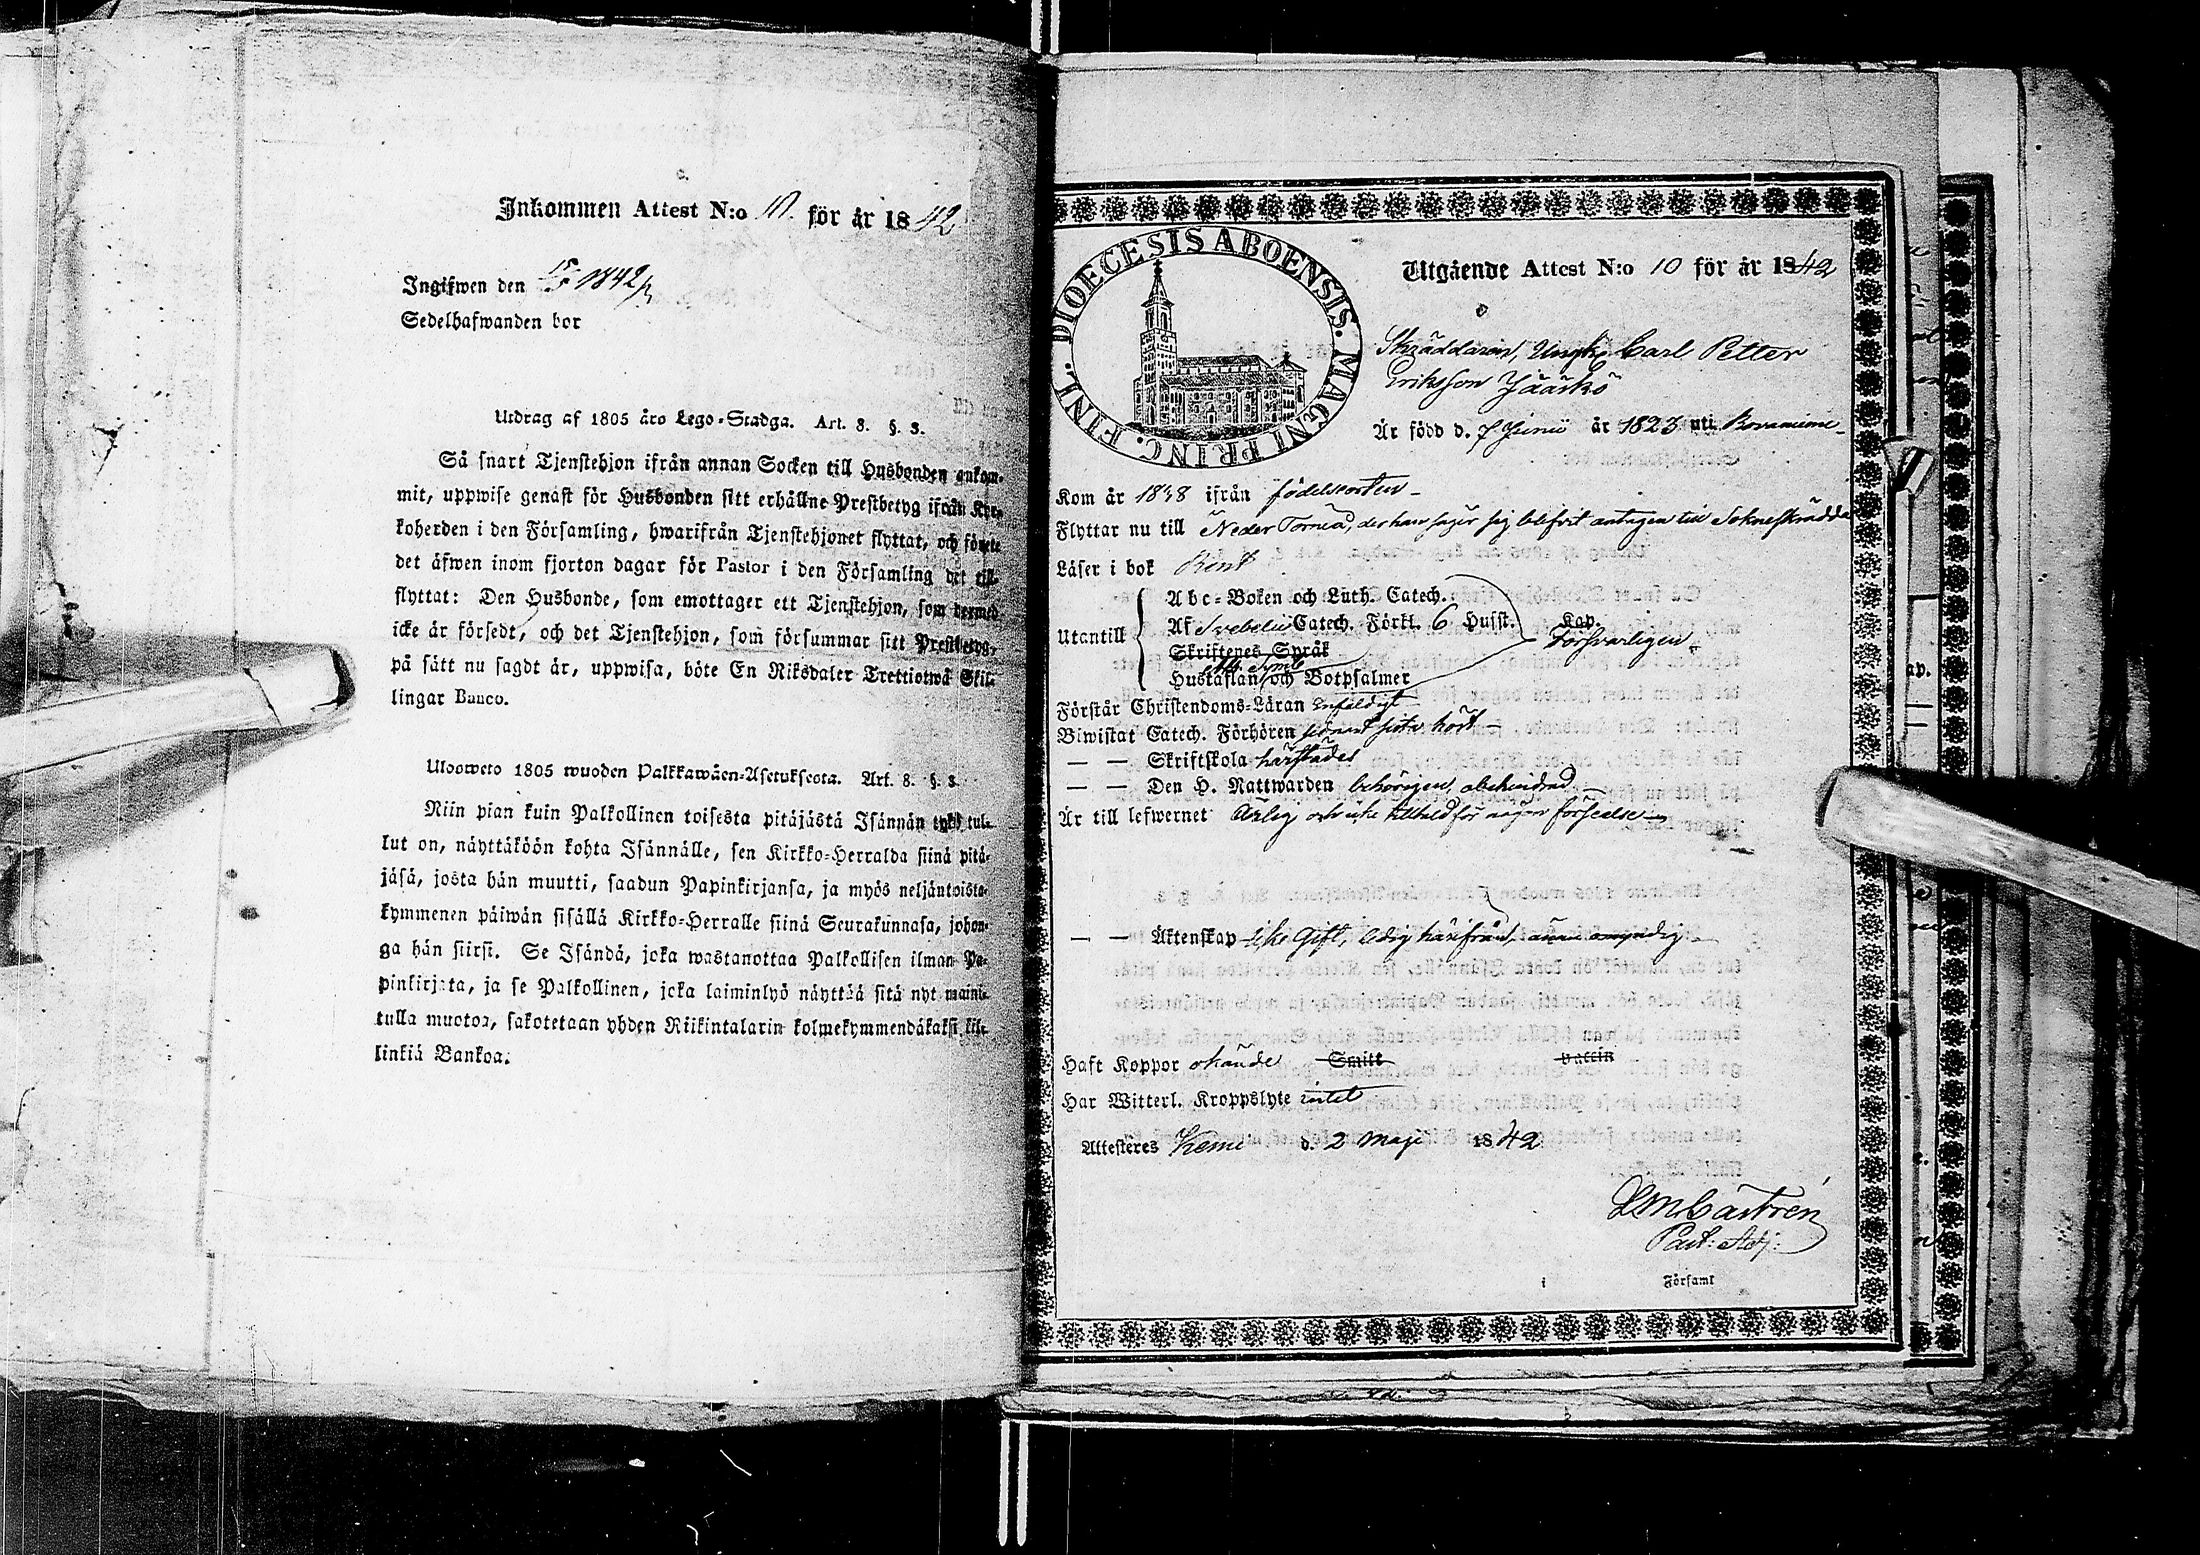 Inkommen Attest N:o 10. för år 1842
Ingifwen den 15/5 1842
Sedelhafwanden bor
Utdrag af 1805 års Lego-Stadga. Art. 8. §. 3.
Så snart Tjenstehjon ifrån annan Socken till Husbonden ankom-
mit, uppwise genast för Husbonden sitt erhållne Prestbetyg ifrån Kyr-
koherden i den Församling, hwarifrån Tjenstehjonet flyttat, och förete
det äfwen inom fjorton dagar för Pastor i den Församling det till-
flyttat: Den Husbonde, som emottager ett Tjenstehjon, som dermed
icke är försedt, och det Tjenstehjon, som försummar sitt Prestbetyg,
på sätt nu sagdt är, uppwisa, böte En Riksdaler Trettiotwå Skil-
lingar Banco.
Ulosweto 1805 wuoden Palkkawäen-Asetuksesta. Art. 8. §. 3.
Niin pian kuin Palkollinen toisesta pitäjästä Isännän tykö tul-
lut on, näyttäköön kohta Isännälle, sen Kirkko-Herralda siinä pitä-
jäsä, josta hän muutti, saadun Papinkirjansa, ja myös neljäntoista-
kymmenen päiwän sisällä Kirkko-Herralle siinä Seurakunnasa, johon-
ga hän siirsi. Se Isändä, joka wastanottaa Palkollisen ilman Pa-
pinkirjata, ja se Palkollinen, joka laiminlyö näyttää sitä nyt maini-
tulla muotoa, sakotetaan yhden Riikintalarin kolmekymmendäkaksi kil-
linkiä Bankoa.
DIOECESIS ABOENSIS. MAGNI PRINC. FINL.
Utgående Attest N:o 10 för år 1842
Skräddaren, Ungk. Carl Petter
Eriksson Jääskö
Är född d. 7 Junii år 1823 uti Rovaniemi
Kom år 1838 ifrån födelseorten
Flyttar nu till Neder Torneå, der han säger sig blifvit antagen till Sokneskräddare
Läser i bok Rent
Utantill
Abc-Boken och Luth. Catech.
Af Svebelii Catech. Förkl. 6 Husst. Kap.
Försvarligen
Skriftenes Språk
Ath. Symb.
Hustaflan och Botpsalmer
Förstår Christendoms-Läran enfaldigt
Biwistat Catech. Förhören hört
— — Skriftskola härstädes
— — Den H. Nattwarden behörigen, obehindrad
Är till lefwernet Ärlig och icke tilltald för någon förseelse
— — Äktenskap icke Gift, ledig härifrån, ännu omyndig
Haft Koppor okände Smitt Vaccin
Har Witterl. Kroppslyte intet
Attesteres Kemi d. 2 Maji 1842
Castrén
Past: Adj:
i Församl